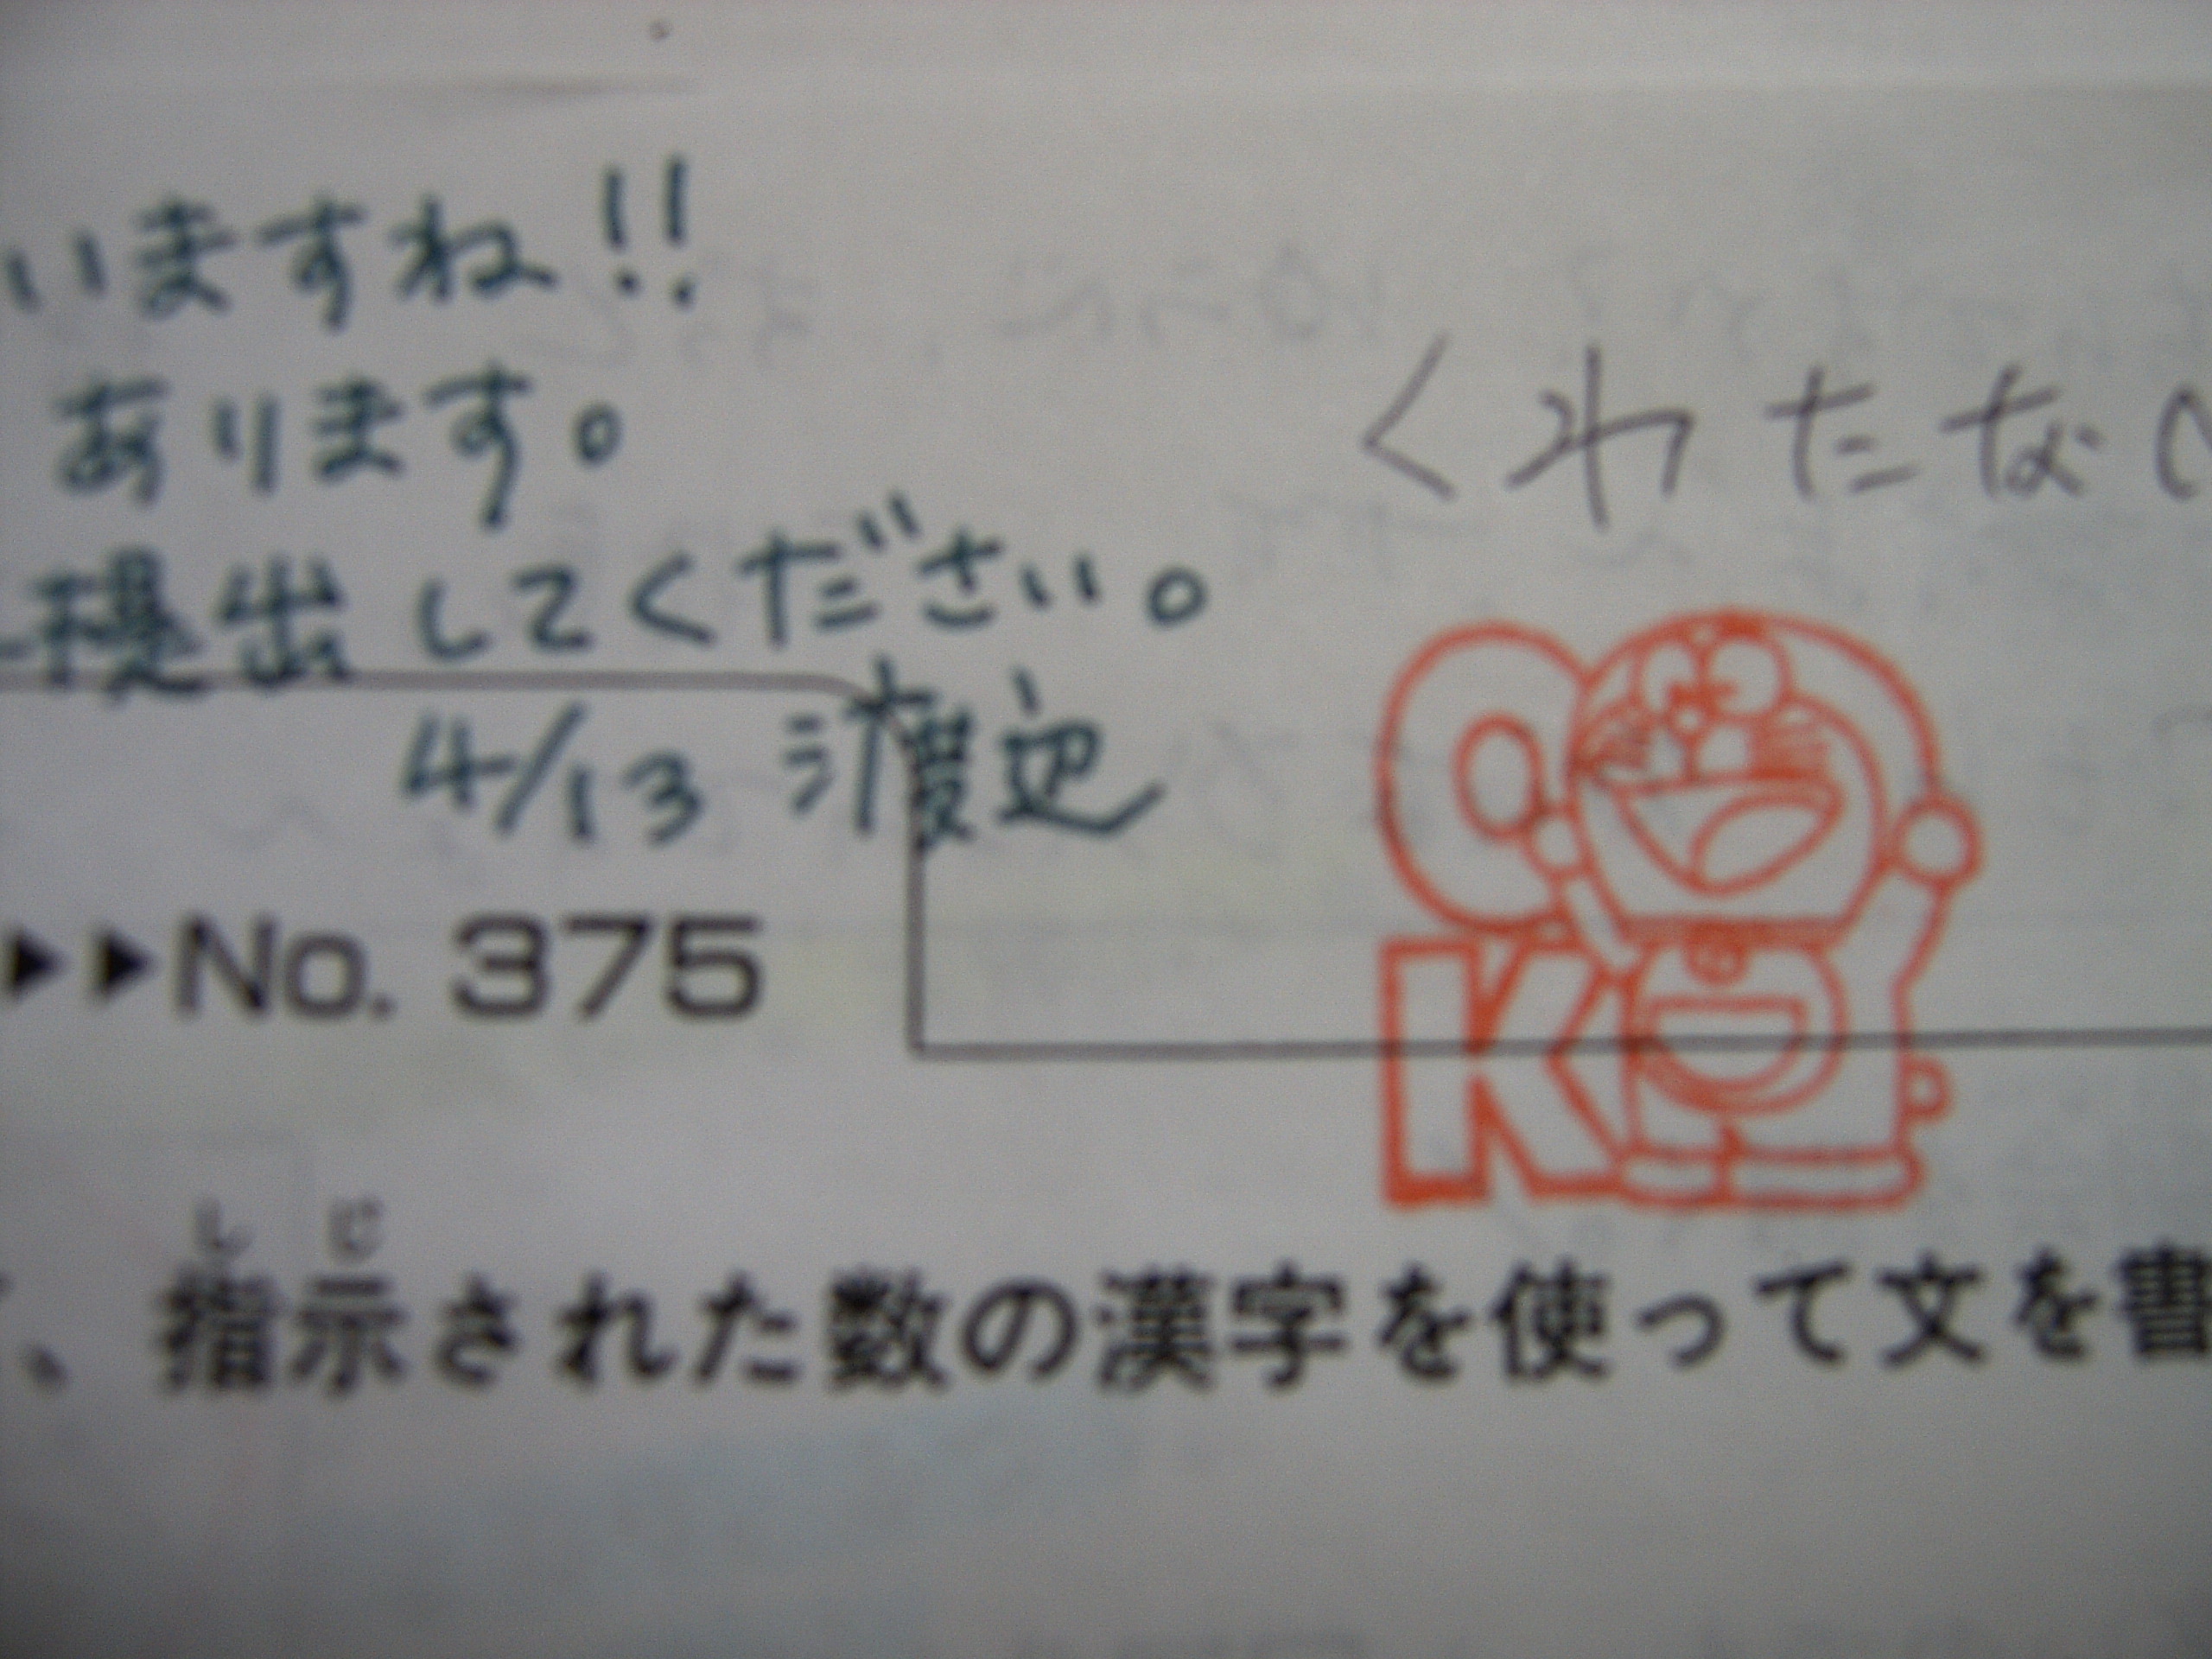 いますね!!
あります。
提出してください。
4/13 渡辺
くわたな
OK
▶▶No. 375
しじ
、指示された数の漢字を使って文を書